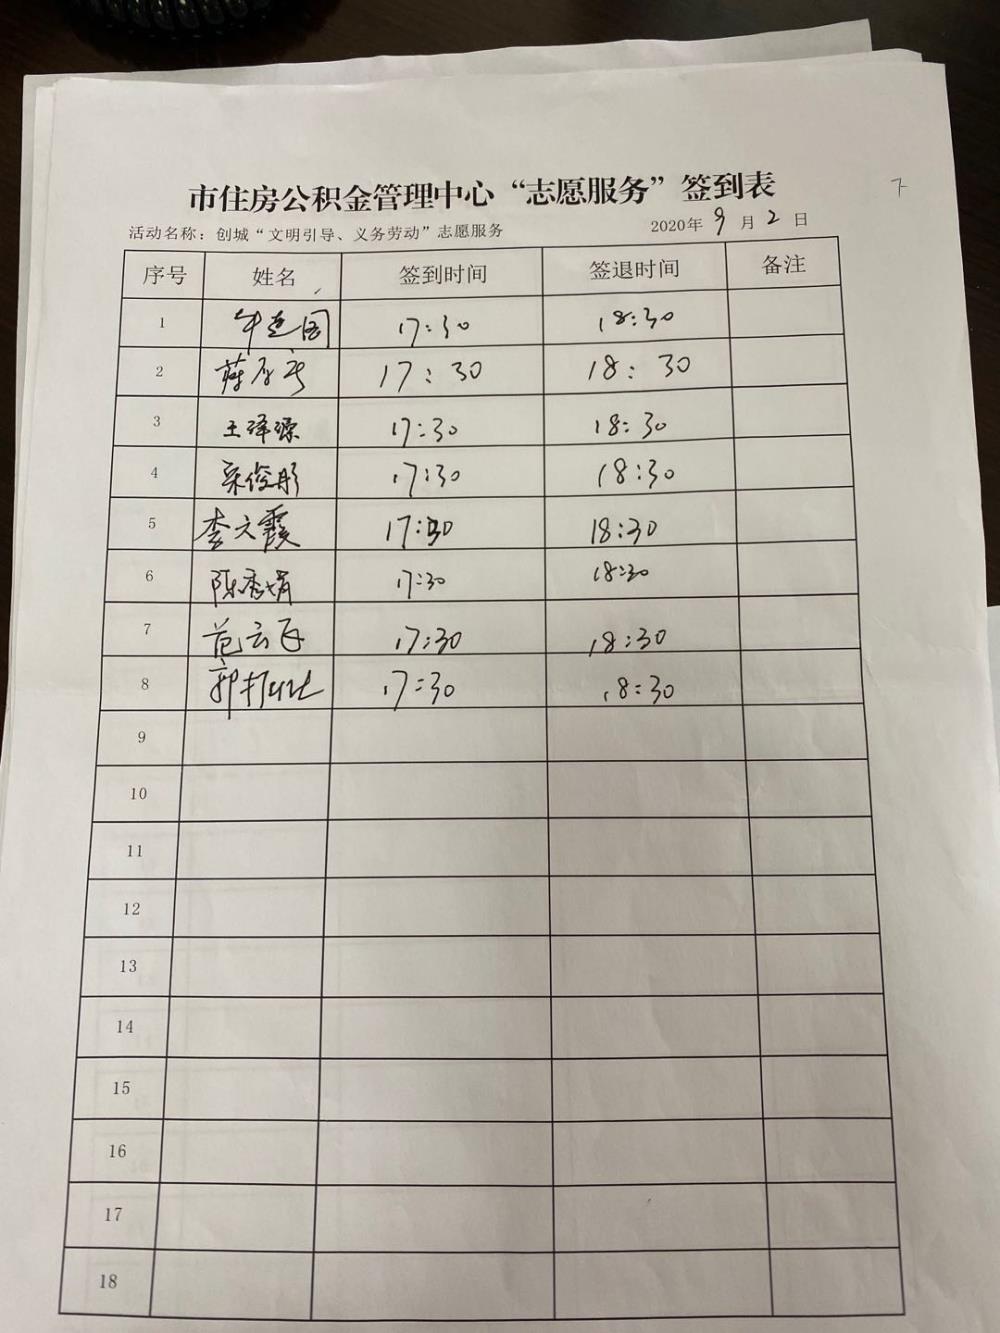 7
市住房公积金管理中心“志愿服务”签到表
活动名称：创城“文明引导、义务劳动”志愿服务 2020年 9 月 2 日
序号 姓名 签到时间 签退时间 备注
1 17:30 18:30
2 17:30 18:30
3 王泽源 17:30 18:30
4 17:30 18:30
5 李文霞 17:30 18:30
6 陈秀娟 17:30 18:30
7 范云 17:30 18:30
8 郭 17:30 18:30
9
10
11
12
13
14
15
16
17
18